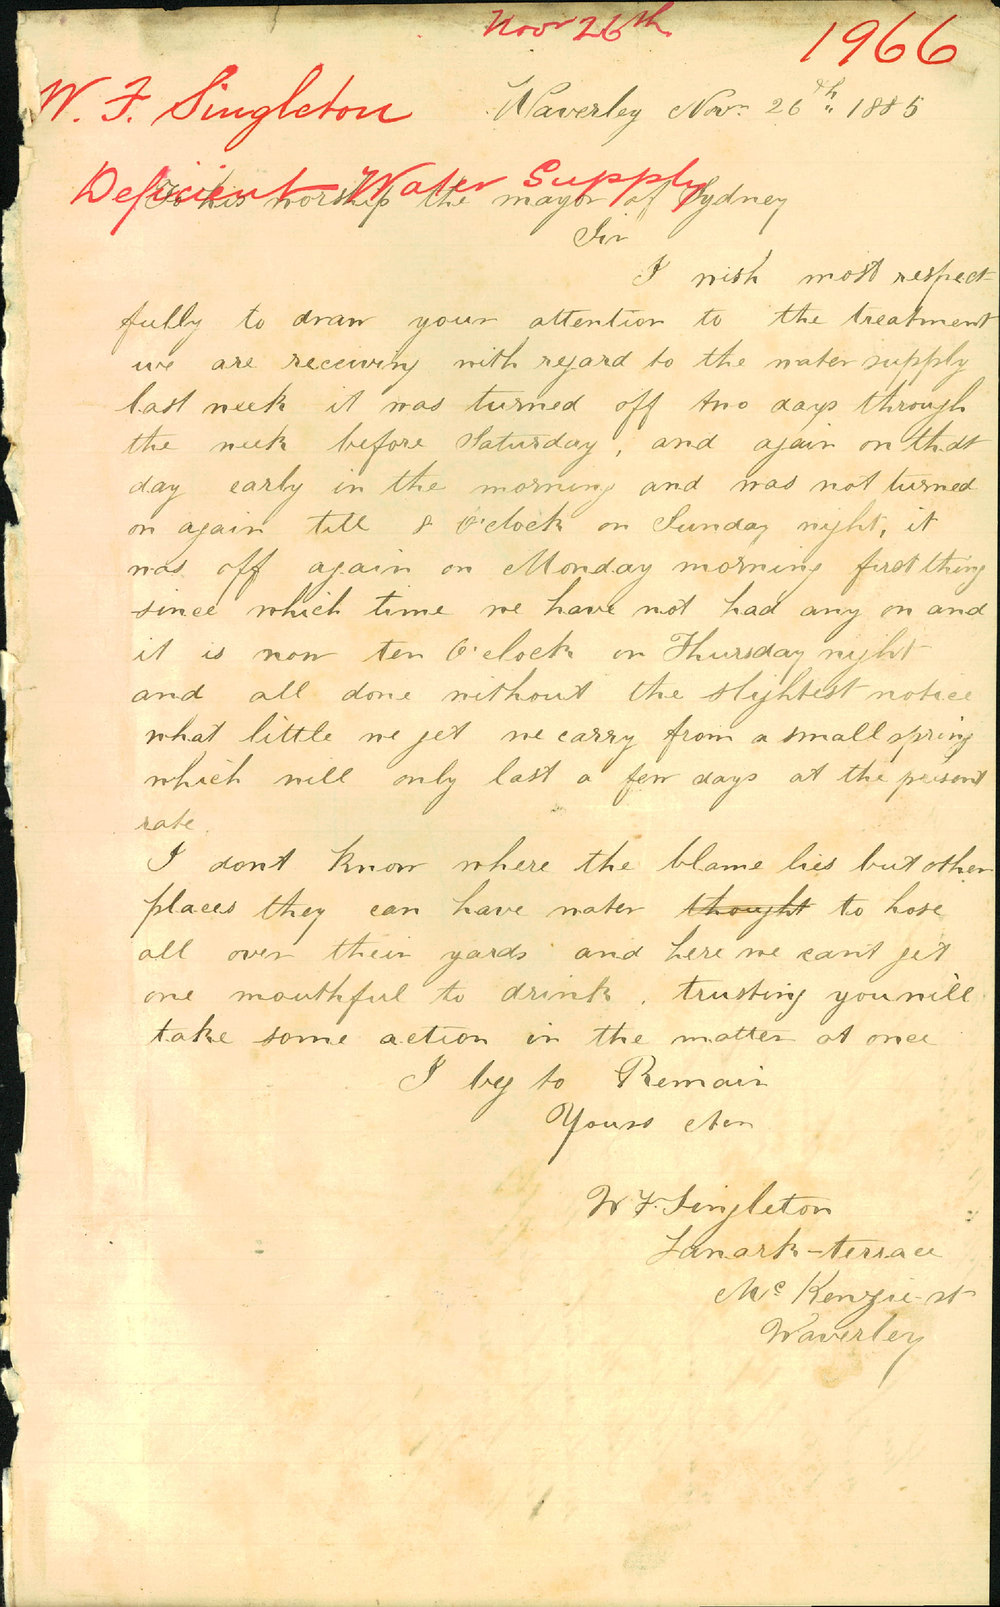 Novr 26th
1966
W. F. Singleton
Waverley Nov. 26th 1885
Deficient Water Supply
To his worship the mayor of Sydney
Sir
I wish most respect
fully to draw your attention to the treatment
we are receiving with regard to the water supply
last week it was turned off two days through
the week before Saturday, and again on that
day early in the morning and was not turned
on again till 8 O'clock on Sunday night, it
was off again on Monday morning first thing
since which time we have not had any on and
it is now ten O'clock on Thursday night
and all done without the slightest notice
what little we get we carry from a small spring
which will only last a few days at the present
rate.
I dont know where the blame lies but other
places they can have water thought to hose
all over their yards and here we cant get
one mouthful to drink. trusting you will
take some action in the matter at once
I beg to Remain
Yours
W. F. Singleton
Lanark-terrace
Mc Kenzie st
Waverley